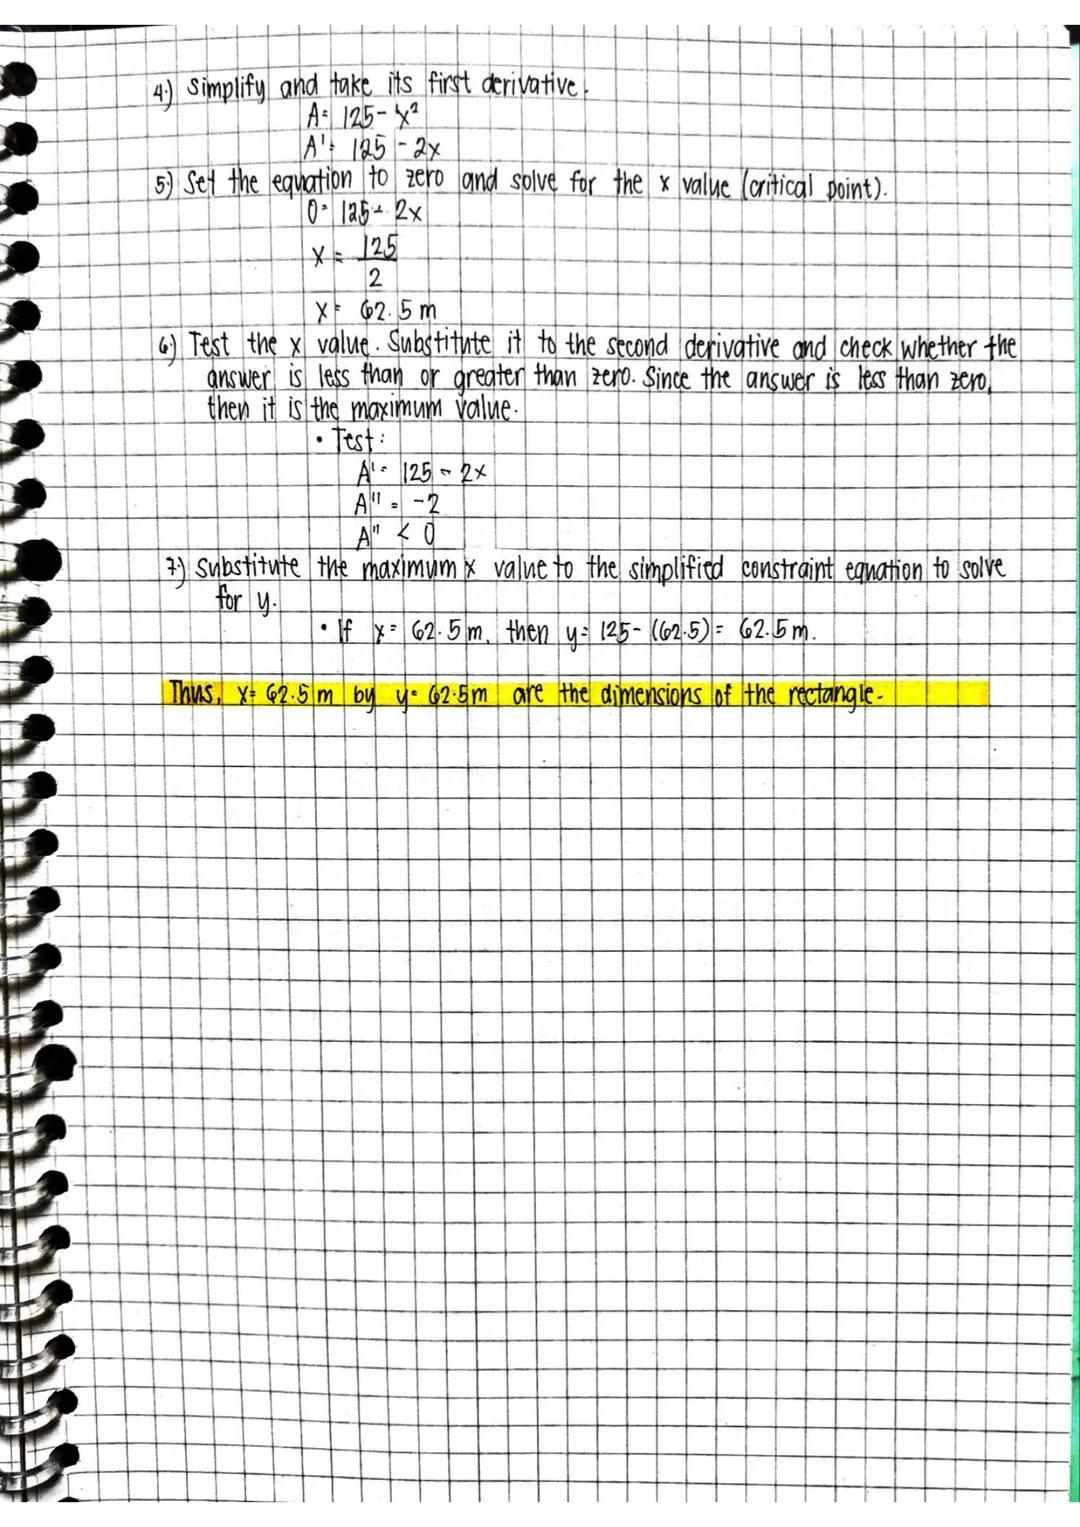 4.) Simplify and take its first derivative.
A = 125 - x²
A' = 125 - 2x
5.) Set the equation to zero and solve for the x value (critical point).
0 = 125 - 2x
x = 125
2
x = 62.5 m
6.) Test the x value. Substitute it to the second derivative and check whether the
answer is less than or greater than zero. Since the answer is less than zero,
then it is the maximum value.
• Test:
A' = 125 - 2x
A'' = -2
A'' < 0
7.) Substitute the maximum x value to the simplified constraint equation to solve
for y.
• If x = 62.5 m, then y = 125 - (62.5) = 62.5 m.
Thus, x = 62.5 m by y = 62.5 m are the dimensions of the rectangle.